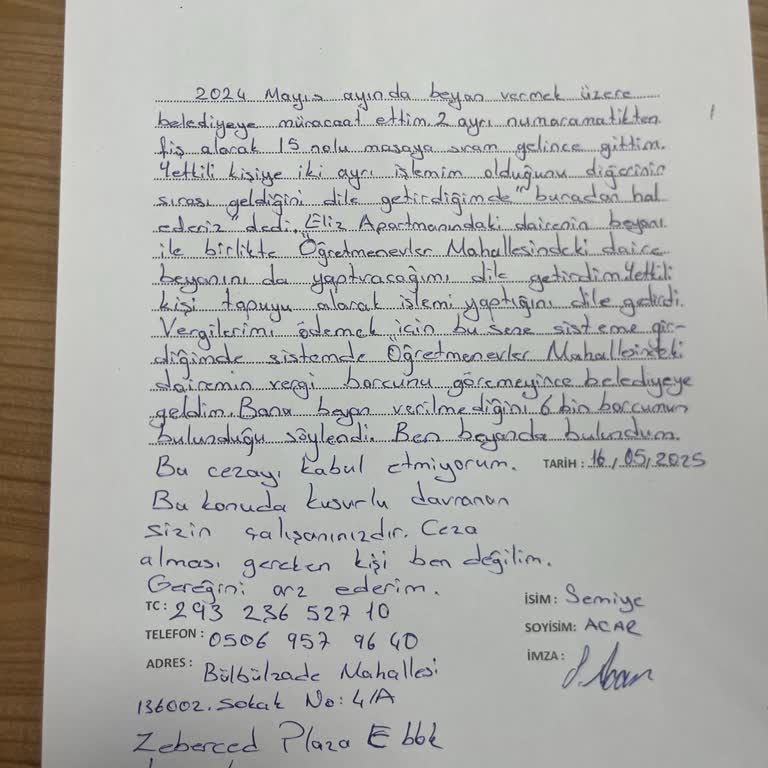 2024 Mayıs ayında beyan vermek üzere
belediyeye müracaat ettim. 2 ayrı numaramatikten
fiş alarak 15 nolu masaya sıram gelince gittim.
Yetkili kişiye iki ayrı işlemim olduğunu diğerinin
sırası geldiğini dile getirdiğimde "buradan hal
ederiz dedi. Eliz Apartmanındaki dairenin beyanı
ile birlikte Öğretmenevler Mahallesindeki daire
beyanını da yaptıracağımı dile getirdim. Yetkili
kişi tapuyu alarak işlemi yaptığını dile getirdi.
Vergilerimi ödemek için bu sene sisteme gir-
diğimde sistemde Öğretmenevler Mahallesindeki
dairemin vergi borcunu göremeyince belediyeye
geldim. Bana beyan verilmediğini 6 bin borcumun
bulunduğu söylendi. Ben beyanda bulundum.
Bu cezayı kabul etmiyorum. TARİH : 16/05/2025
Bu konuda kusurlu davranan
sizin çalışanınızdır. Ceza
alması gereken kişi ben değilim.
Gereğini arz ederim.
TC: 293 236 527 10
İSİM: Semiye
TELEFON : 0506 957 96 40
SOYİSİM: ACAR
ADRES : Bülbülzade Mahallesi
İMZA :
136002. Sokak No: 4/A
Zeberced Plaza E blok